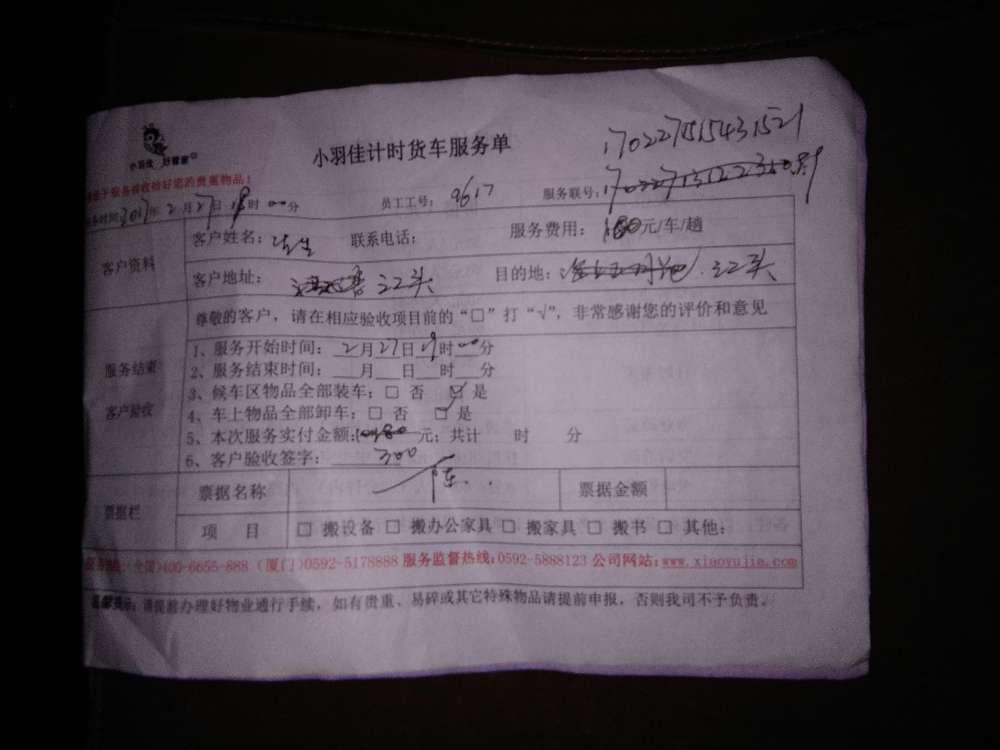 小羽佳 好管家
小羽佳计时货车服务单
1702271515431521
服务前收检好您的贵重物品!
2017年2月27日 时00分
员工工号: 9617
服务联号:
客户资料
客户姓名: 联系电话: 服务费用: 180元/车/趟
客户地址: 江头 目的地: 江头
尊敬的客户，请在相应验收项目前的“□”打“√”，非常感谢您的评价和意见
服务结束
客户验收
1、服务开始时间: 2月27日19时00分
2、服务结束时间: 月 日 时 分
3、候车区物品全部装车: □ 否 ☑ 是
4、车上物品全部卸车: □ 否 ☑ 是
5、本次服务实付金额: 元; 共计 时 分
300
6、客户验收签字: 陈
票据栏
票据名称 票据金额
项 目 □ 搬设备 □ 搬办公家具 □ 搬家具 □ 搬书 □ 其他:
(全国)400-6655-888 (厦门)0592-5178888 服务监督热线:0592-5888123 公司网站: www.xiaoyujia.com
温馨提示: 请提前办理好物业通行手续，如有贵重、易碎或其它特殊物品请提前申报，否则我司不予负责。